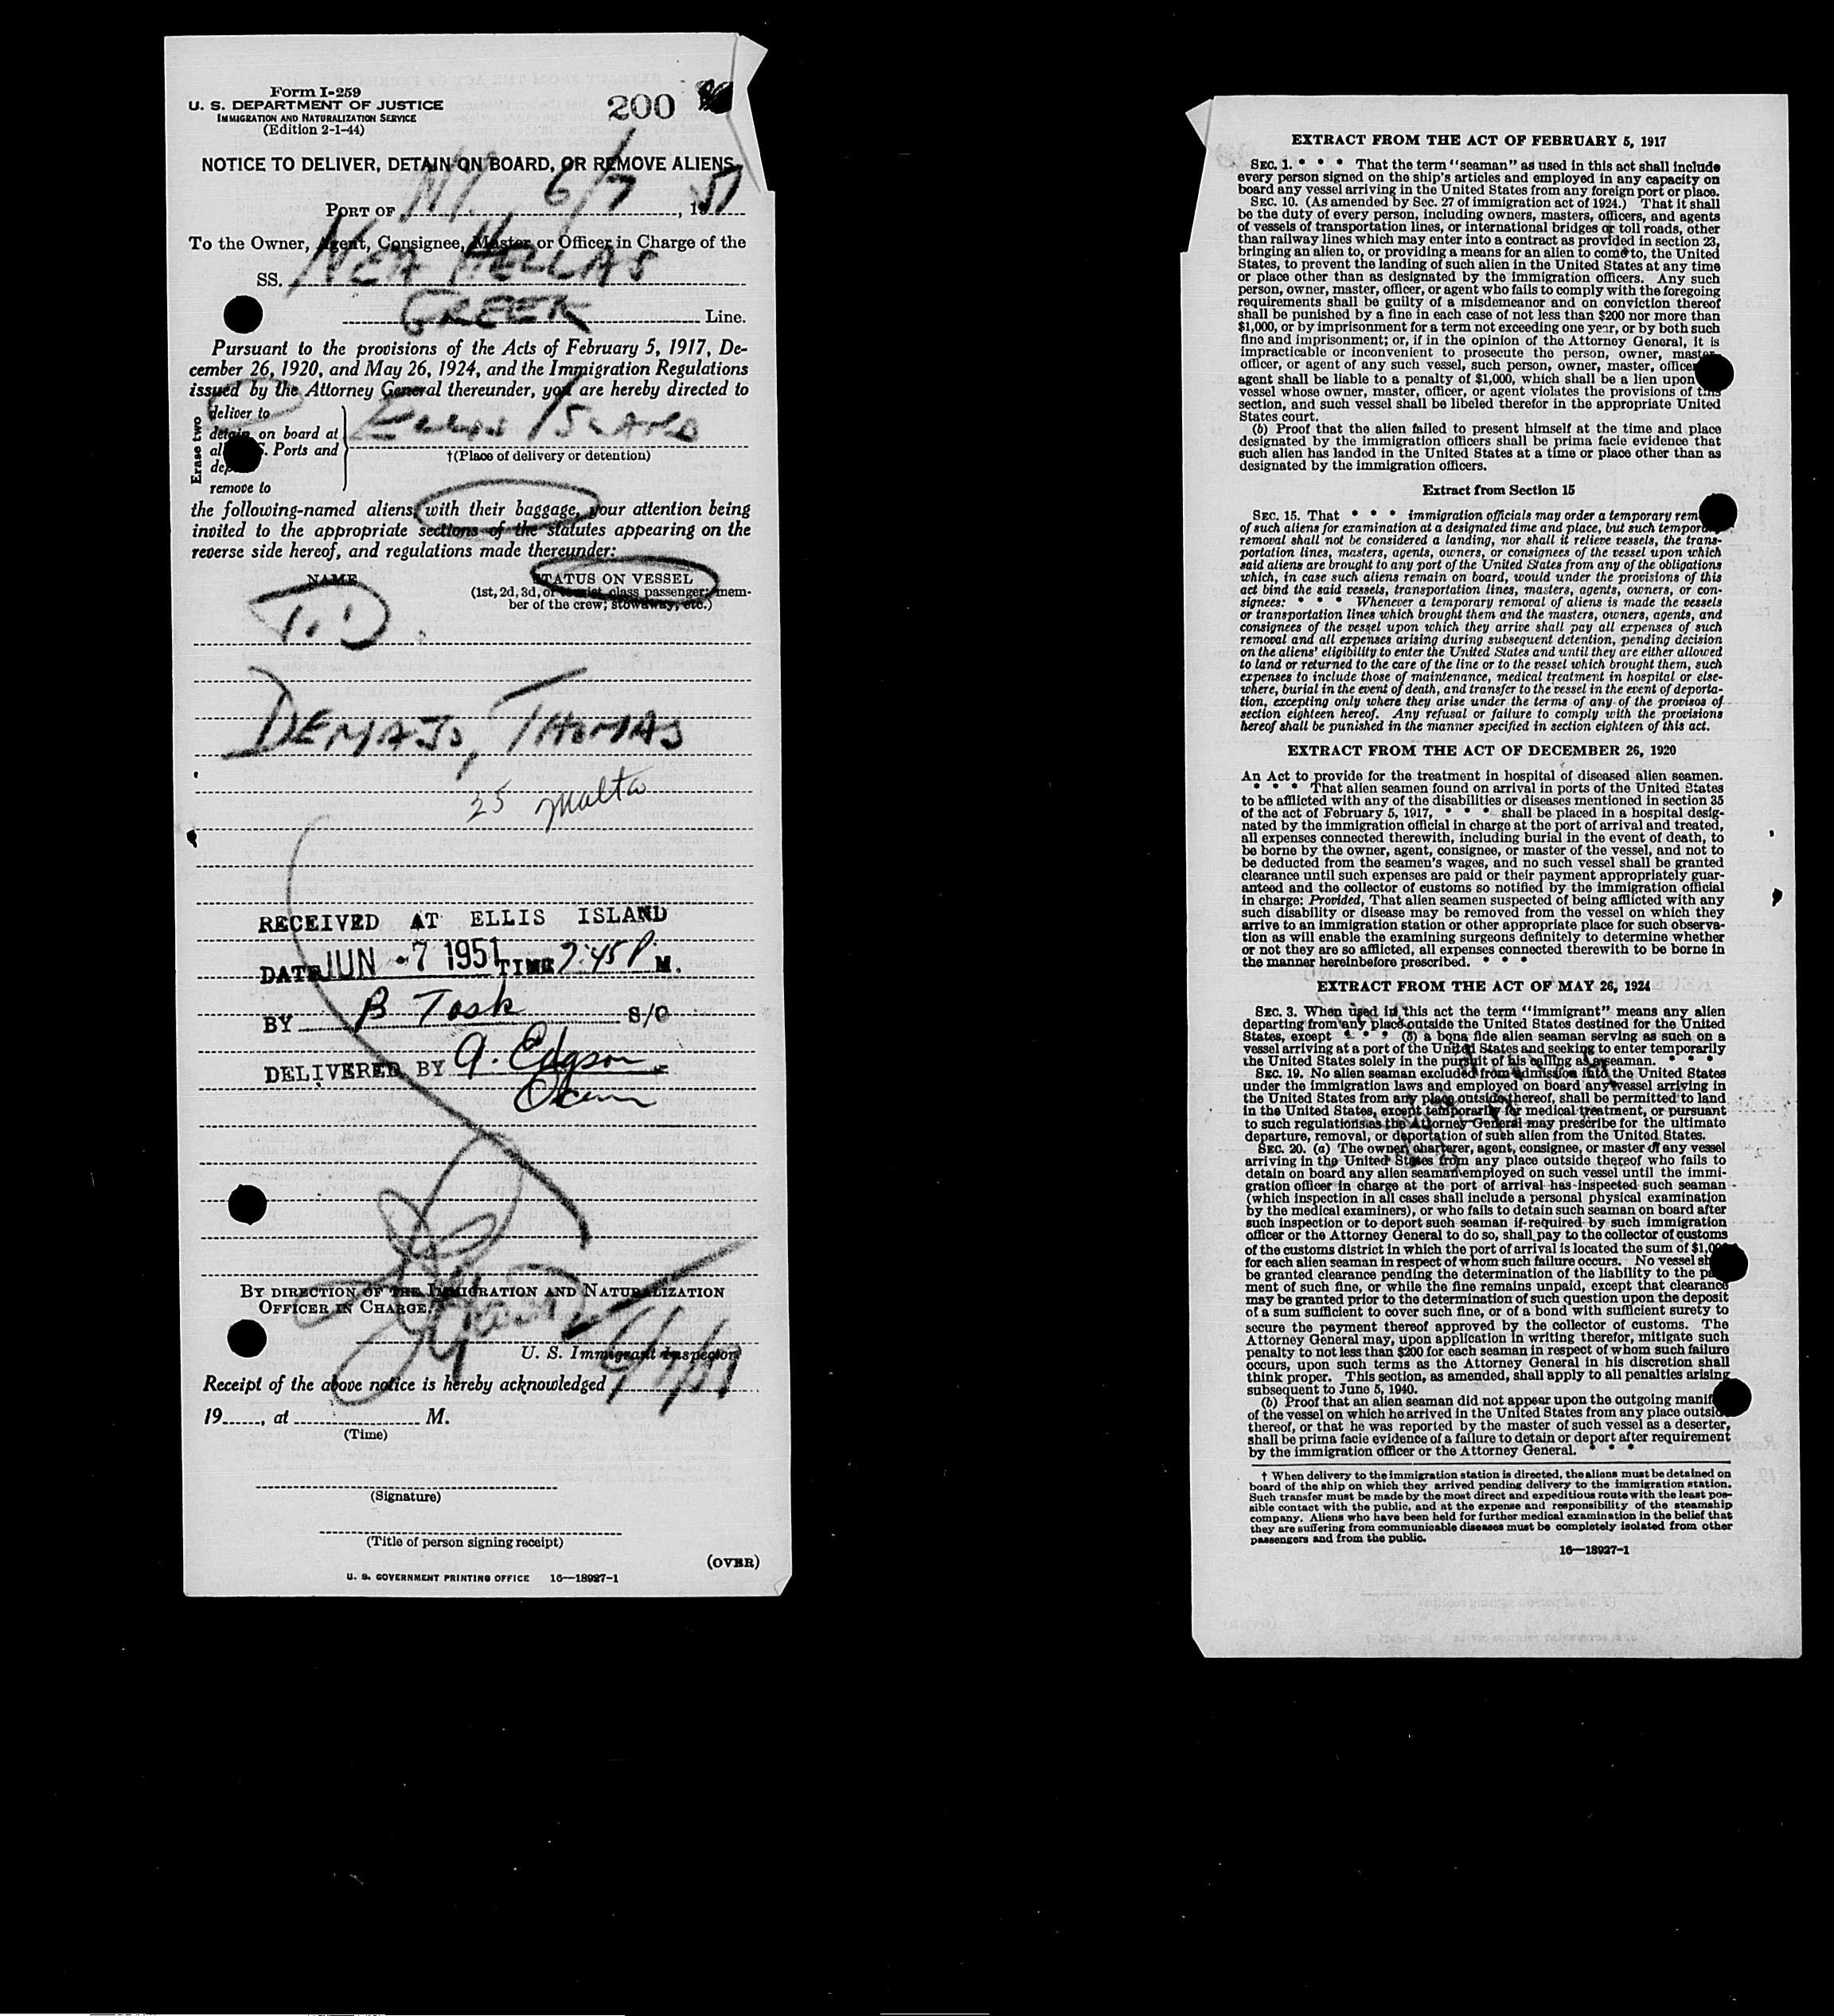 Form I-259
200
U. S. DEPARTMENT OF JUSTICE
IMMIGRATION AND NATURALIZATION SERVICE
(Edition 2-1-44)
NOTICE TO DELIVER, DETAIN ON BOARD, OR REMOVE ALIENS
PORT OF N.Y. 6/7, 1951
To the Owner, Agent, Consignee, Master or Officer in Charge of the
SS. NEA HELLAS
GREEK Line.
Pursuant to the provisions of the Acts of February 5, 1917, De-
cember 26, 1920, and May 26, 1924, and the Immigration Regulations
issued by the Attorney General thereunder, you are hereby directed to
Erase two
deliver to
detain on board at
al S. Ports and
dep
remove to
ELLIS ISLAND
†(Place of delivery or detention)
the following-named aliens, with their baggage, your attention being
invited to the appropriate sections of the statutes appearing on the
reverse side hereof, and regulations made thereunder:
NAME
STATUS ON VESSEL
(1st, 2d, 3d, or tourist class passenger; mem-
ber of the crew; stowaway, etc.)
T.D.
DEMAJO, THOMAS
25 Malta
RECEIVED AT ELLIS ISLAND
DATE JUN -7 1951 TIME 7:45 P M.
BY B Tosk S/O
DELIVERED BY
BY DIRECTION OF THE IMMIGRATION AND NATURALIZATION
OFFICER IN CHARGE.
U. S. Immigrant Inspector
Receipt of the above notice is hereby acknowledged 6/7/51
19......, at .................... M.
(Time)
(Signature)
(Title of person signing receipt)
(OVER)
U. S. GOVERNMENT PRINTING OFFICE 16—18927-1
EXTRACT FROM THE ACT OF FEBRUARY 5, 1917
SEC. 1. * * * That the term "seaman" as used in this act shall include
every person signed on the ship's articles and employed in any capacity on
board any vessel arriving in the United States from any foreign port or place.
SEC. 10. (As amended by Sec. 27 of immigration act of 1924.) That it shall
be the duty of every person, including owners, masters, officers, and agents
of vessels of transportation lines, or international bridges or toll roads, other
than railway lines which may enter into a contract as provided in section 23,
bringing an alien to, or providing a means for an alien to come to, the United
States, to prevent the landing of such alien in the United States at any time
or place other than as designated by the immigration officers. Any such
person, owner, master, officer, or agent who fails to comply with the foregoing
requirements shall be guilty of a misdemeanor and on conviction thereof
shall be punished by a fine in each case of not less than $200 nor more than
$1,000, or by imprisonment for a term not exceeding one year, or by both such
fine and imprisonment; or, if in the opinion of the Attorney General, it is
impracticable or inconvenient to prosecute the person, owner, master,
officer, or agent of any such vessel, such person, owner, master, officer
agent shall be liable to a penalty of $1,000, which shall be a lien upon
vessel whose owner, master, officer, or agent violates the provisions of this
section, and such vessel shall be libeled therefor in the appropriate United
States court.
(b) Proof that the alien failed to present himself at the time and place
designated by the immigration officers shall be prima facie evidence that
such alien has landed in the United States at a time or place other than as
designated by the immigration officers.
Extract from Section 15
SEC. 15. That * * * immigration officials may order a temporary rem
of such aliens for examination at a designated time and place, but such temporary
removal shall not be considered a landing, nor shall it relieve vessels, the trans-
portation lines, masters, agents, owners, or consignees of the vessel upon which
said aliens are brought to any port of the United States from any of the obligations
which, in case such aliens remain on board, would under the provisions of this
act bind the said vessels, transportation lines, masters, agents, owners, or con-
signees: * * * Whenever a temporary removal of aliens is made the vessels
or transportation lines which brought them and the masters, owners, agents, and
consignees of the vessel upon which they arrive shall pay all expenses of such
removal and all expenses arising during subsequent detention, pending decision
on the aliens' eligibility to enter the United States and until they are either allowed
to land or returned to the care of the line or to the vessel which brought them, such
expenses to include those of maintenance, medical treatment in hospital or else-
where, burial in the event of death, and transfer to the vessel in the event of deporta-
tion, excepting only where they arise under the terms of any of the provisos of
section eighteen hereof. Any refusal or failure to comply with the provisions
hereof shall be punished in the manner specified in section eighteen of this act.
EXTRACT FROM THE ACT OF DECEMBER 26, 1920
An Act to provide for the treatment in hospital of diseased alien seamen.
* * * That alien seamen found on arrival in ports of the United States
to be afflicted with any of the disabilities or diseases mentioned in section 35
of the act of February 5, 1917, * * * shall be placed in a hospital desig-
nated by the immigration official in charge at the port of arrival and treated,
all expenses connected therewith, including burial in the event of death, to
be borne by the owner, agent, consignee, or master of the vessel, and not to
be deducted from the seamen's wages, and no such vessel shall be granted
clearance until such expenses are paid or their payment appropriately guar-
anteed and the collector of customs so notified by the immigration official
in charge: Provided, That alien seamen suspected of being afflicted with any
such disability or disease may be removed from the vessel on which they
arrive to an immigration station or other appropriate place for such observa-
tion as will enable the examining surgeons definitely to determine whether
or not they are so afflicted, all expenses connected therewith to be borne in
the manner hereinbefore prescribed. * * *
EXTRACT FROM THE ACT OF MAY 26, 1924
SEC. 3. When used in this act the term "immigrant" means any alien
departing from any place outside the United States destined for the United
States, except * * * (5) a bona fide alien seaman serving as such on a
vessel arriving at a port of the United States and seeking to enter temporarily
the United States solely in the pursuit of his calling as a seaman. * * *
SEC. 19. No alien seaman excluded from admission into the United States
under the immigration laws and employed on board any vessel arriving in
the United States from any place outside thereof, shall be permitted to land
in the United States, except temporarily for medical treatment, or pursuant
to such regulations as the Attorney General may prescribe for the ultimate
departure, removal, or deportation of such alien from the United States.
SEC. 20. (a) The owner, charterer, agent, consignee, or master of any vessel
arriving in the United States from any place outside thereof who fails to
detain on board any alien seaman employed on such vessel until the immi-
gration officer in charge at the port of arrival has inspected such seaman
(which inspection in all cases shall include a personal physical examination
by the medical examiners), or who fails to detain such seaman on board after
such inspection or to deport such seaman if required by such immigration
officer or the Attorney General to do so, shall pay to the collector of customs
of the customs district in which the port of arrival is located the sum of $1,000
for each alien seaman in respect of whom such failure occurs. No vessel sh
be granted clearance pending the determination of the liability to the pay
ment of such fine, or while the fine remains unpaid, except that clearance
may be granted prior to the determination of such question upon the deposit
of a sum sufficient to cover such fine, or of a bond with sufficient surety to
secure the payment thereof approved by the collector of customs. The
Attorney General may, upon application in writing therefor, mitigate such
penalty to not less than $200 for each seaman in respect of whom such failure
occurs, upon such terms as the Attorney General in his discretion shall
think proper. This section, as amended, shall apply to all penalties arising
subsequent to June 5, 1940.
(b) Proof that an alien seaman did not appear upon the outgoing manif
of the vessel on which he arrived in the United States from any place outside
thereof, or that he was reported by the master of such vessel as a deserter,
shall be prima facie evidence of a failure to detain or deport after requirement
by the immigration officer or the Attorney General. * * *
† When delivery to the immigration station is directed, the aliens must be detained on
board of the ship on which they arrived pending delivery to the immigration station.
Such transfer must be made by the most direct and expeditious route with the least pos-
sible contact with the public, and at the expense and responsibility of the steamship
company. Aliens who have been held for further medical examination in the belief that
they are suffering from communicable diseases must be completely isolated from other
passengers and from the public.
16—18927-1